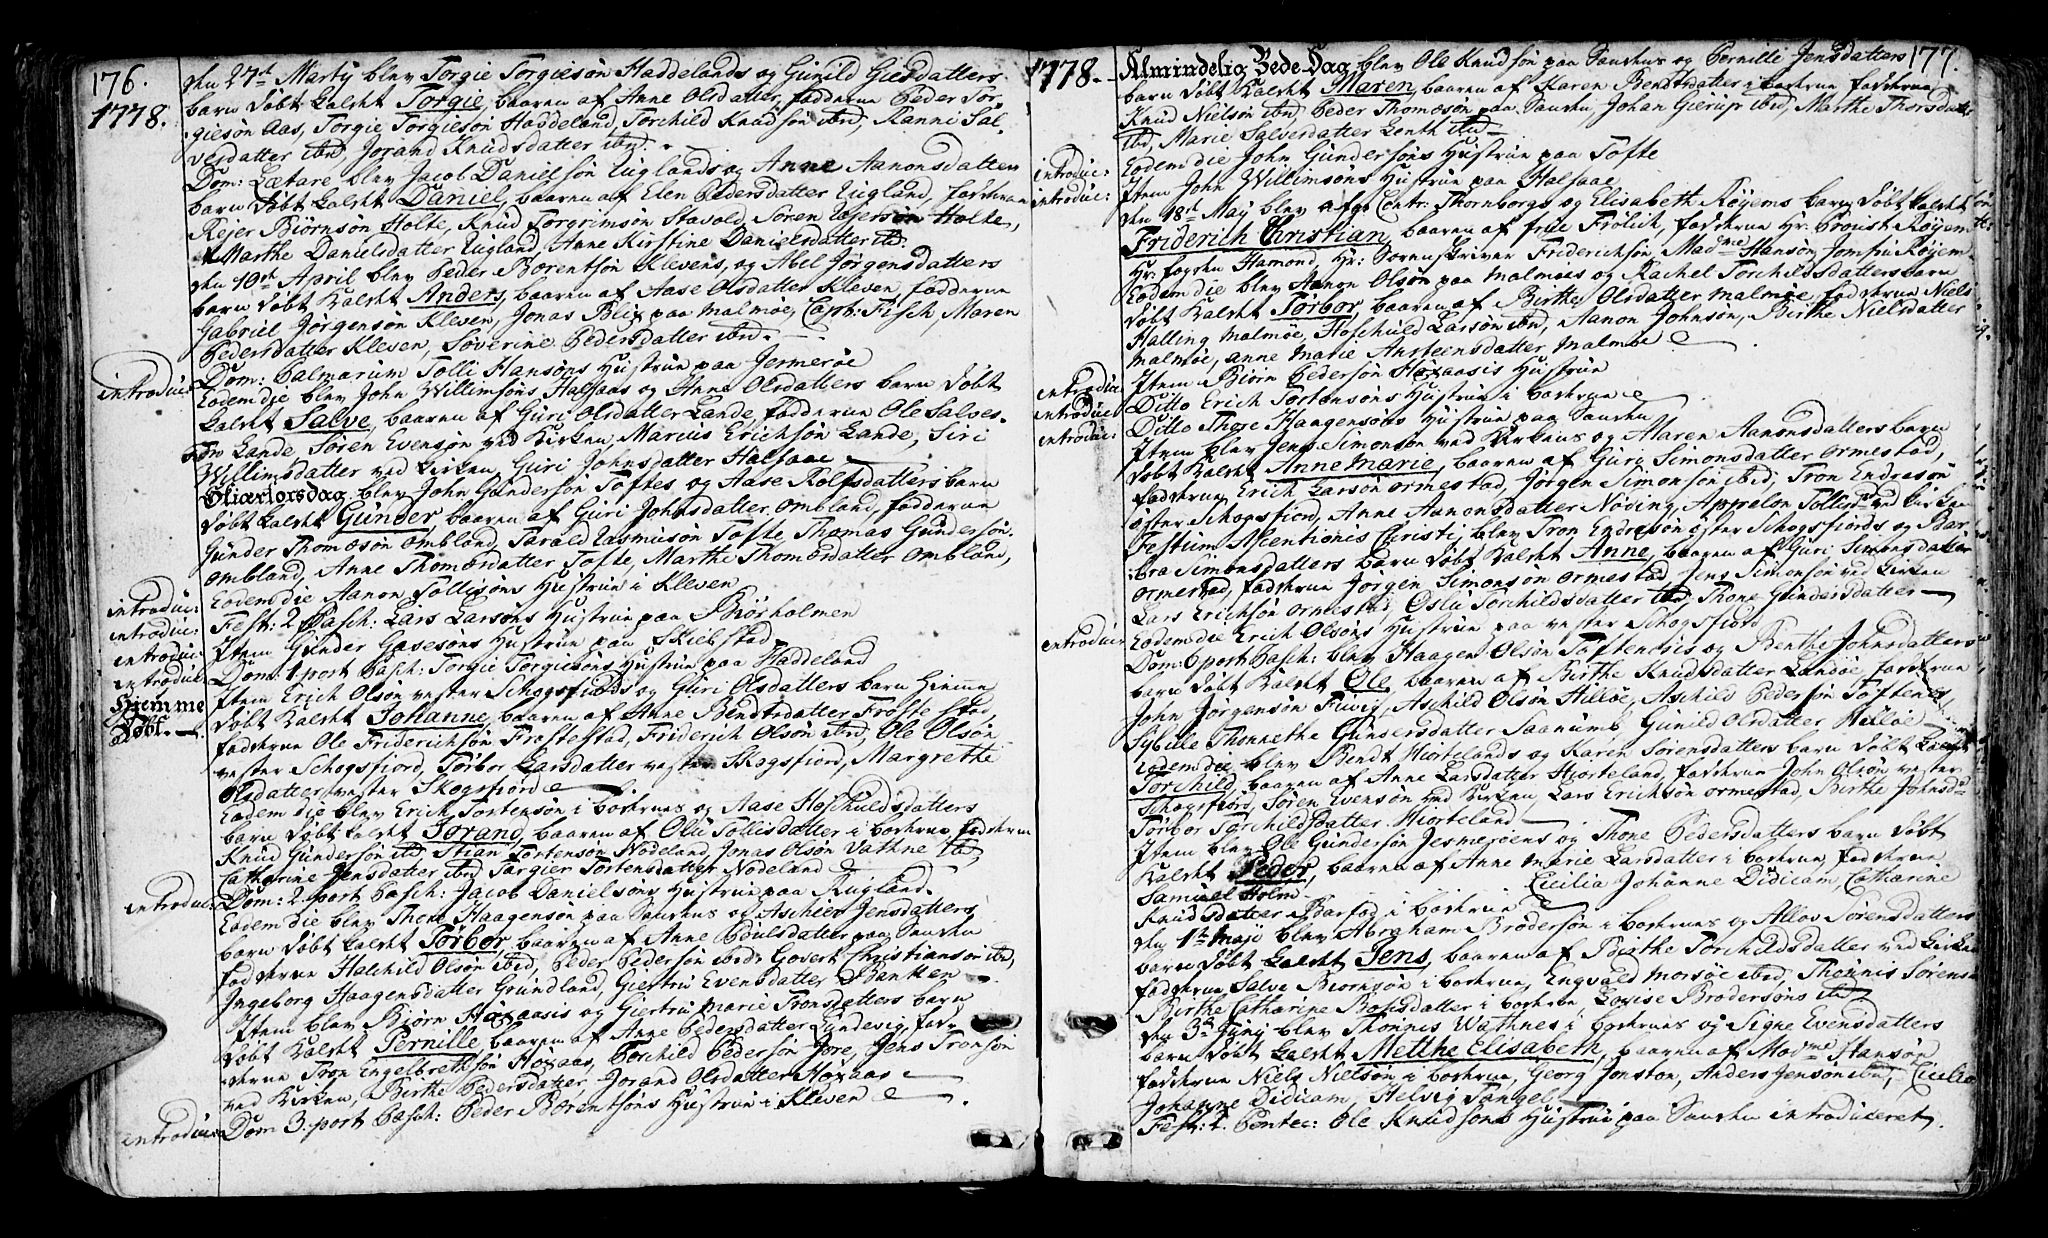 176.
1778.
den 27de Martij blev Torgie Torgiesøn Haddelands og Gunild Giersdatters
barn døbt kaldet Torgie, baaren af Anne Olsdatter, fadderne Peder Tor-
giesøn Aas, Torgie Torgiesøn Haddeland, Torchild Knudsøn ibd, Ranni Sal-
vesdatter ibd, Jorand Knudsdatter ibd.
Dom: Lætare blev Jacob Danielsøn Uuglands og Anne Aanonsdatters
barn døbt kaldet Daniel, baaren af Elen Pedersdatter Uugland, fadderne
Rejer Biørnsøn Holte, Knud Torgrimsøn Stavold, Søren Rejersøn Holte,
Marthe Danielsdatter Uugland, Anne Kirstine Danielsdatter ibd.
den 10de April blev Peder Børentsøn Klevens, og Abel Jørgensdatters
barn døbt kaldet Anders, baaren af Aase Olsdatter Kleven, fadderne
Gabriel Jørgensøn Kleven, Jonas Blix paa Malmøe, Capt: Fisch, Maren
Pedersdatter Kleven, Søverine Pedersdatter ibd.
introduc: Dom: Palmarum Tolli Hansøns Hustrue paa Jermerøe
Eodem die blev John Willimsøns Halsaas og Anne Olsdatters barn døbt
kaldet Salve, baaren af Guri Olsdatter Lande, fadderne Ole Salves-
Lande, Søren Evensøn ved Kirken, Marcus Erichsøn Lande, Siri
Willimsdatter ved Kirken, Guri Johnsdatter Halsaae
Skiærtorsdag blev John Gundersøn Toftes og Aase Rolfsdatters barn
døbt kaldet Gunder, baaren af Guri Johnsdatter Ombland, fadderne
Gunder Thomæsøn Ombland, Tarald Rasmusøn Tofte, Thomas Gundersøn
Ombland, Anne Thomædatter Tofte, Marthe Thomædatter Ombland,
introduc: Eodem die Aanon Tollisøns Hustrue i Kleven
introduc: Fest: 2 Pasch: Lars Larsøns Hustrue paa Biørholmen
introduc: Item Gunder Gasesøns Hustrue paa Skiebstad
introduc: Dom: 1 post Pasch: Torgie Torgiesøns Hustrue paa Haddeland
Hjemme Item Erich Olsøn vester Schogsfiords og Guri Olsdatters barn hiemme
døbt. døbt kaldet Johanne, baaren af Anne Bendtsdatter Froste stad,
fadderne Ole Friderichsøn Frostestad, Friderich Olsøn ibd, Ole Olsøn
vester Schogsfiord, Torbor Larsdatter vester Skogsfiord, Margrethe
Olsdatter vester Skogsfiord
Eodem die blev Erich Tortensøn i Boskernes og Aase Hoschuldsdatters
barn døbt kaldet Jorand, baaren af Olu Tollisdatter i boskerne, fadderne
Knud Gundersøn ibd, Stian Tortensøn Nodeland, Jonas Olsøn Vathne ibd,
Catharine Jensdatter ibd, Targier Tortensdatter Nodeland
introduc: Dom: 2 post Pasch: Jacob Danielsøns Hustrue paa Uugland.
Eodem die blev Thore Haagensøn paa Sanskens og Aschier Jensdatters
barn døbt kaldet Torbor, baaren af Anne Poulsdatter paa Sansken
fadderne Halchild Olsøn ibid, Peder Pedersøn ibid, Govert Christiansøn ibd,
Ingeborg Haagensdatter Grundland, Giertru Evensdatter Banken
Item blev Biørn Høxaasis og Giertru Marie Tronsdatters barn
døbt kaldet Pernille, baaren af Anne Pedersdatter Lundevig, fad-
derne Tron Engelbrethsøn Høxaas, Torchild Pedersøn Jore, Jens Tronsøn
ved Kirken, Birthe Pedersdatter, Jorand Olsdatter Høxaas
introduc: Dom 3. post Pasch: Peder Børentsøns Hustrue i Kleven
177.
1778.
Almindelig Bede-Dag blev Ole Knudsøn paa Sanskens og Pernille Jensdatters
barn døbt kaldet Maren, baaren af Karen Bendtsdatter i boskerne, fadderne
Knud Nielsøn ibd, Peder Thomæsøn paa Sansken, Johan Gierup ibd, Marthe Thorsdatter
ibd, Marie Salvesdatter Lenth ibd
introduc: Eodem die John Gundersøns Hustrue paa Tofte
introduc: Item John Willimsøns Hustrue paa Halsaae
den 18de May blev afg: Contr: Thornborgs og Elisabeth Røyems barn døbt kaldet
Friderich Christian, baaren af frue Frolich, fadderne Hr: Provst Røyem
Hr: fogden Hamond, Hr: Sorenskriver Friderichsøn, Madme Hansøn, Jomfru Røyem.
Eodem die blev Aanon Olsøn paa Malmøes og Rachel Torchildsdatters barn
døbt kaldet Torbor, baaren af Birthe Olsdatter Malmøe, fadderne Niels
Halling Malmøe, Hoschuld Larsøn ibd, Aanon Johnsøn, Birthe Nielsdatter
Malmøe, Anne Marie Ansteensdatter Malmøe
introduc: Item Biørn Pedersøn Høxaasis Hustrue
introduc: Ditto Erich Tortensøns Hustrue i boskerne
introduc: Ditto Thore Haagensøns Hustrue paa Sansken
Item blev Jens Simonsøn ved Kirkens og Maren Aanonsdatters barn
døbt kaldet Anne Marie, baaren af Guri Simonsdatter Ormestad,
fadderne Erich Larsøn Ormestad, Jørgen Simonsøn ibid, Tron Endresøn
øster Schogsfiord, Anne Aanonsdatter Nøding, Appelon Tollisd: ved Kirken
Festum Ascentionis Christi blev Tron Endresøn øster Schogsfiords og Bar-
bra Simonsdatters barn døbt kaldet Anne, baaren af Guri Simonsdatter
Ormestad, fadderne Jørgen Simonsøn Ormestad, Jens Simonsøn ved Kirken
Lars Erichsøn Ormestad, Oslu Torchildsdatter ibd, Thone Gundersdatter
introduc: Eodem die Erich Olsøns Hustrue paa vester Schogsfiord
Dom: 6 post Pasch: blev Haagen Olsøn Toftenæs og Berthe Johnsdatters
barn døbt kaldet Ole, baaren af Birthe Knudsdatter Landøe, fadderne
John Jørgensøn Fuvig, Aschild Olsøn Hilløe, Aschild Pedersøn Toftenes,
Sybille Thonnethe Gundersdatter Saanum, Gunild Olsdatter Hilløe
Eodem die blev Bendt Hiortelands og Karen Sørensdatters barn døbt kaldet
Torchild, baaren af Anne Larsdatter Hiorteland, fadderne John Olsøn vester
Schogsfiord, Søren Evensøn ved Kirken, Lars Erichsøn Ormestad, Birthe Johnsd:
Torbor Torchildsdatter Hiorteland
Item blev Ole Gundersøn Jesmerøens og Thone Pedersdatters barn døbt
kaldet Peder, baaren af Anne Marie Larsdatter i boskerne, fadderne
Samuel Holm Cecilia Johanne Didicam, Catharine
Knudsdatter Barfod i boskerne
den 1te Maji blev Abraham Brodersøn i boskernes og Allov Sørensdatters
barn døbt kaldet Jens, baaren af Birthe Torchildsdatter ved Kirken
fadderne Salve Biørnsøn i boskerne, Engvald Morsøe ibid, Thønnis Sørens
Birthe Catharine Boisdatter i boskerne Lovise Brodersøns ibd
den 3de Junij blev Thønnis Wathnes i boskernes og Signe Evensdatters
barn døbt kaldet Metthe Elisabeth, baaren af Madme Hansøn
fadderne Niels Nielsøn i boskerne, Georg Jonston, Anders Jensøn ibd, Cicilia
Johanne Didicam, Helvig Tangel
Fest: 1. Pentec: Ole Knudsøns Hustrue paa Sansken introduceret.